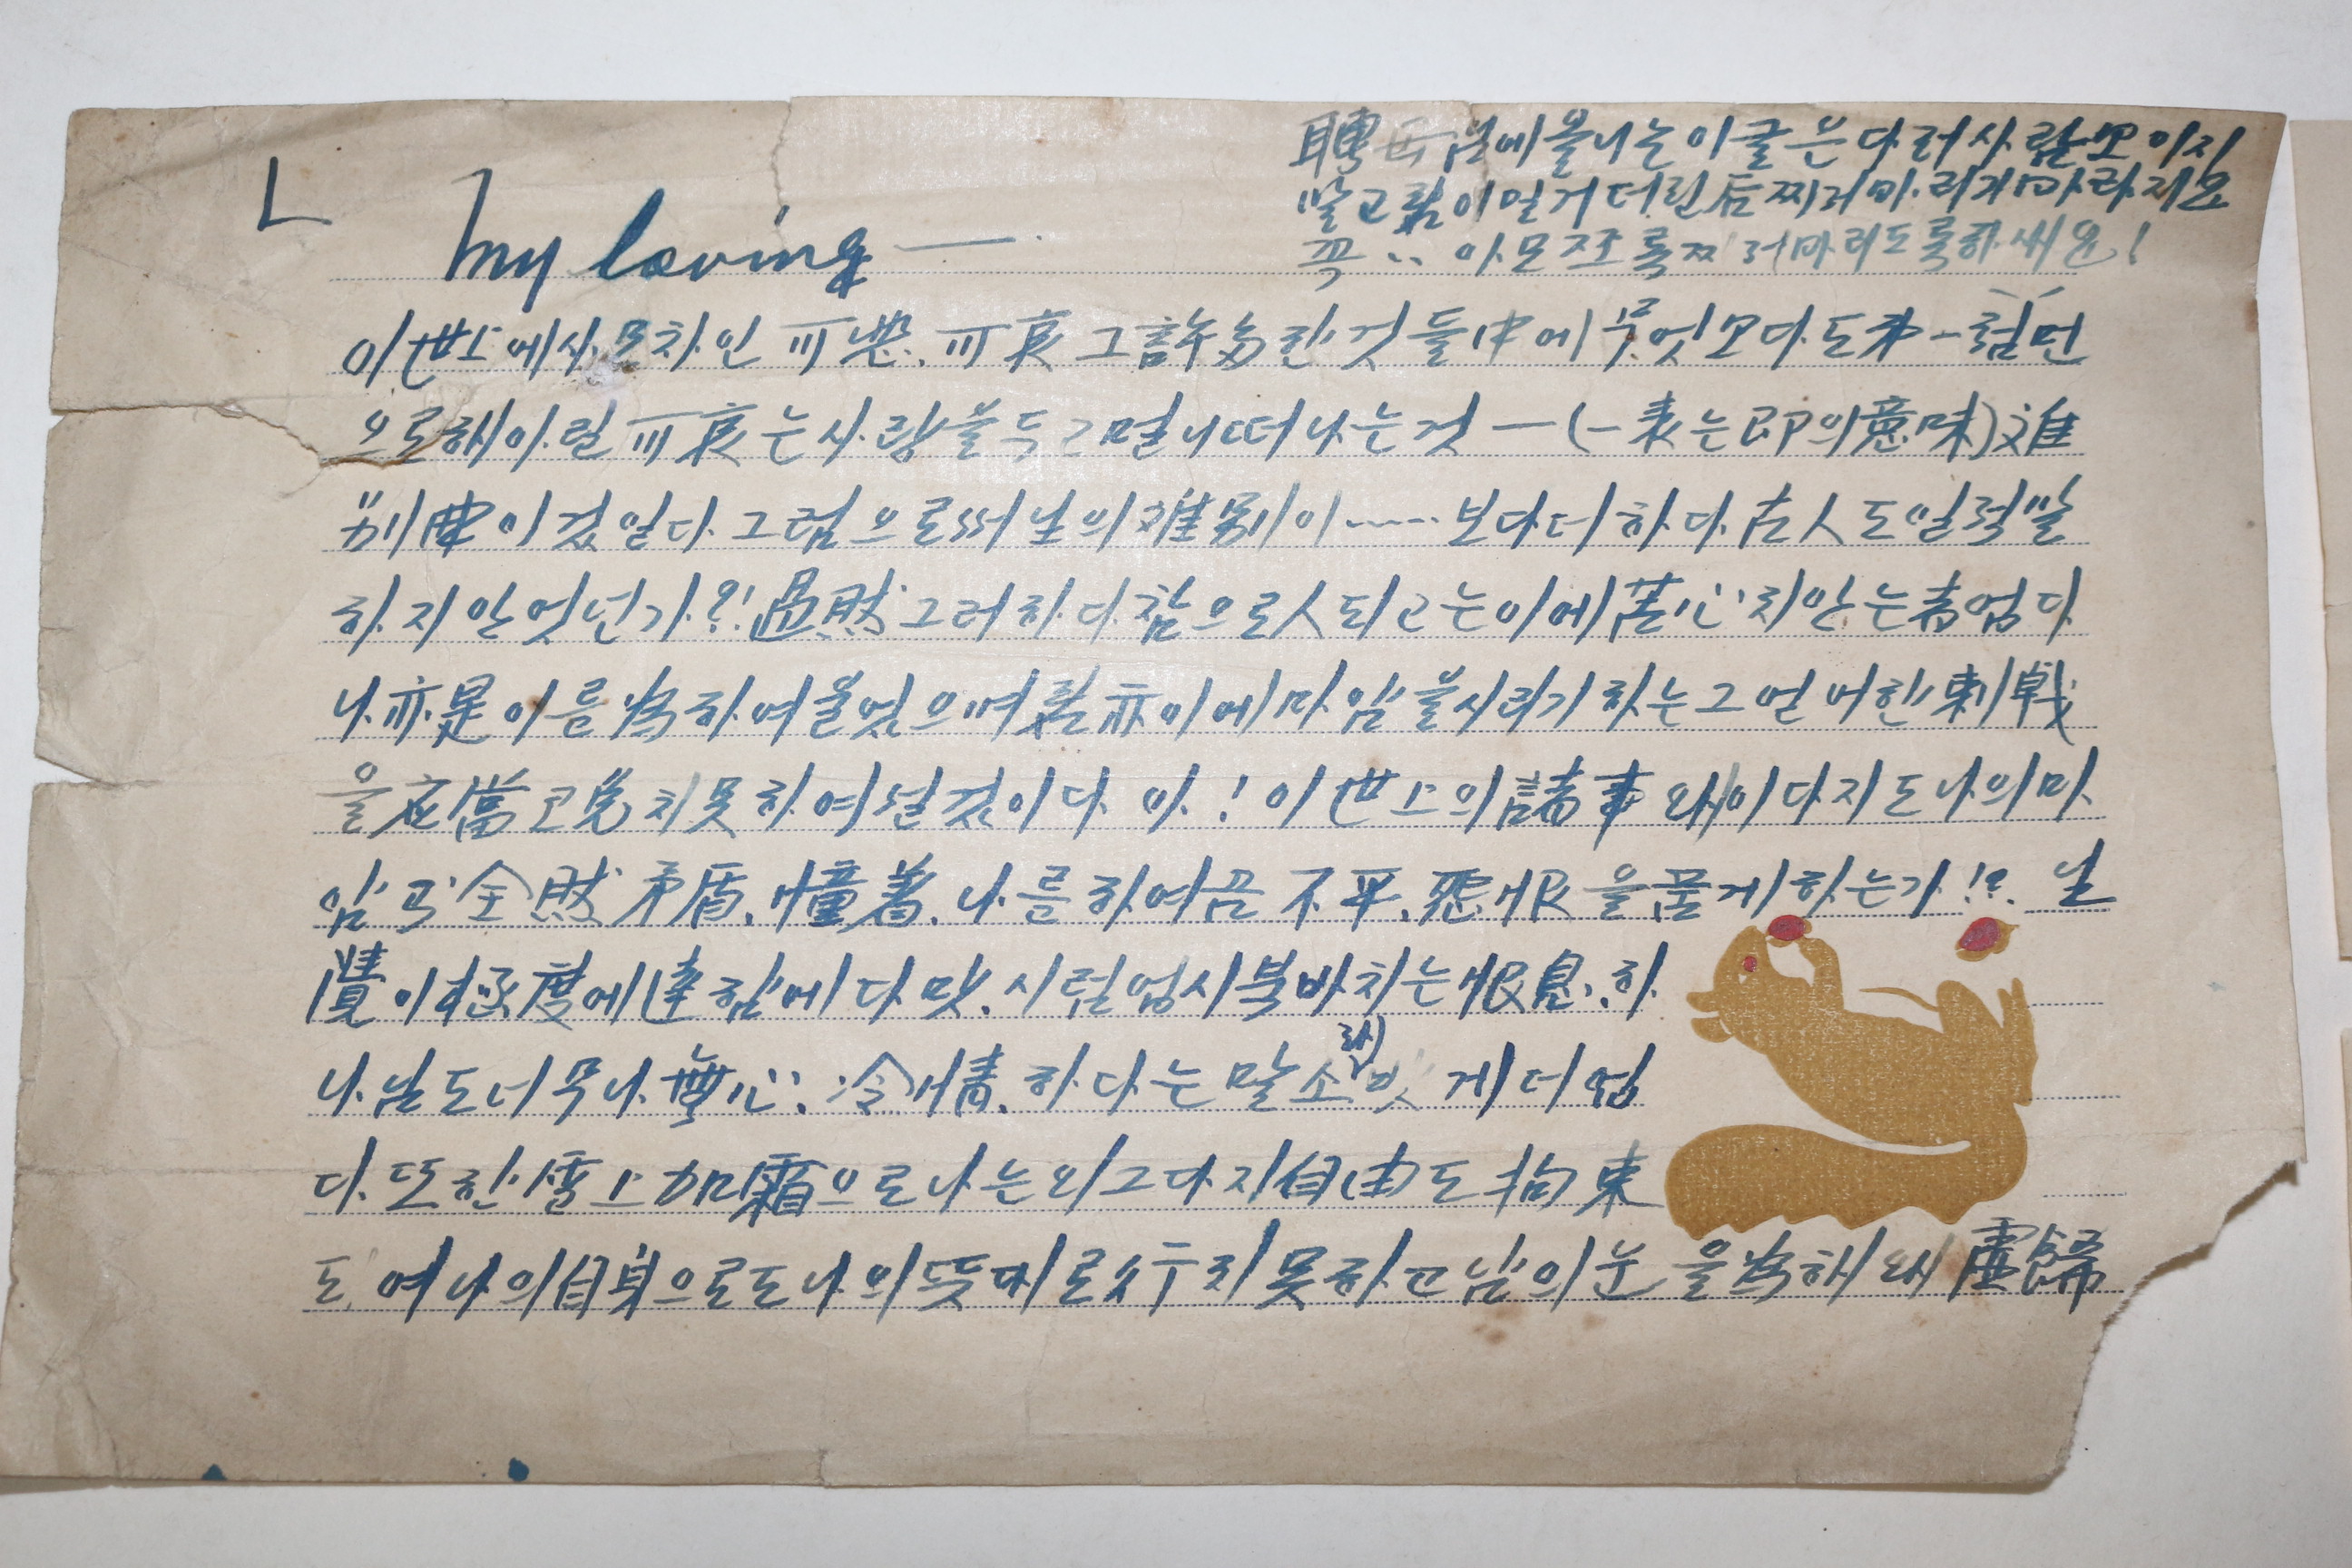 My loving —
聘岳님에 올니는 이 글은 다러 사람 보이지
말고 님이 일거 더린 后 찌저 바리기 바라지요
꼭‥ 아모조록 찌저 바리도록 하세요!
이 世上에 사모차인 可悲. 可哀 그 許多한 것들 中에 무엇보다도 第一 첨먼
으로 해아릴 可哀는 사랑을 두고 멀니 떠나는 것 — (—表는 即의 意味)
別 이것일다 그럼으로써 生의 離別이 …… 보다 더하다 古人도 일럭 말
하지 안엇던가?! 過然 그러하다 참으로 人 되고는 이에 苦心치 안는 者 업다
나 亦是 이를 為하여 울엇으며 님 亦 이에 마암을 시리기 하는 그 언어한 刺戟
을 応當코 免치 못하여슬 것이다 아! 이 世上의 諸事 왜 이다지도 나의 마
암과 全然 矛盾. 憧着. 나를 하여끔 不平. 怨恨을 품게 하는가!? 날
憤이 極度에 達함에 다맛. 시럼업시 북바치는 恨息. 하
나 님도 너무나 無心. 冷情. 하다는 말 소래밧게 더 업
다 또한 雪上加霜으로 나는 외 그다지 自由도 拘束
도여 나의 自身으로도 나의 뜻대로 行치 못하고 남의 눈을 為해 왜 虛歸